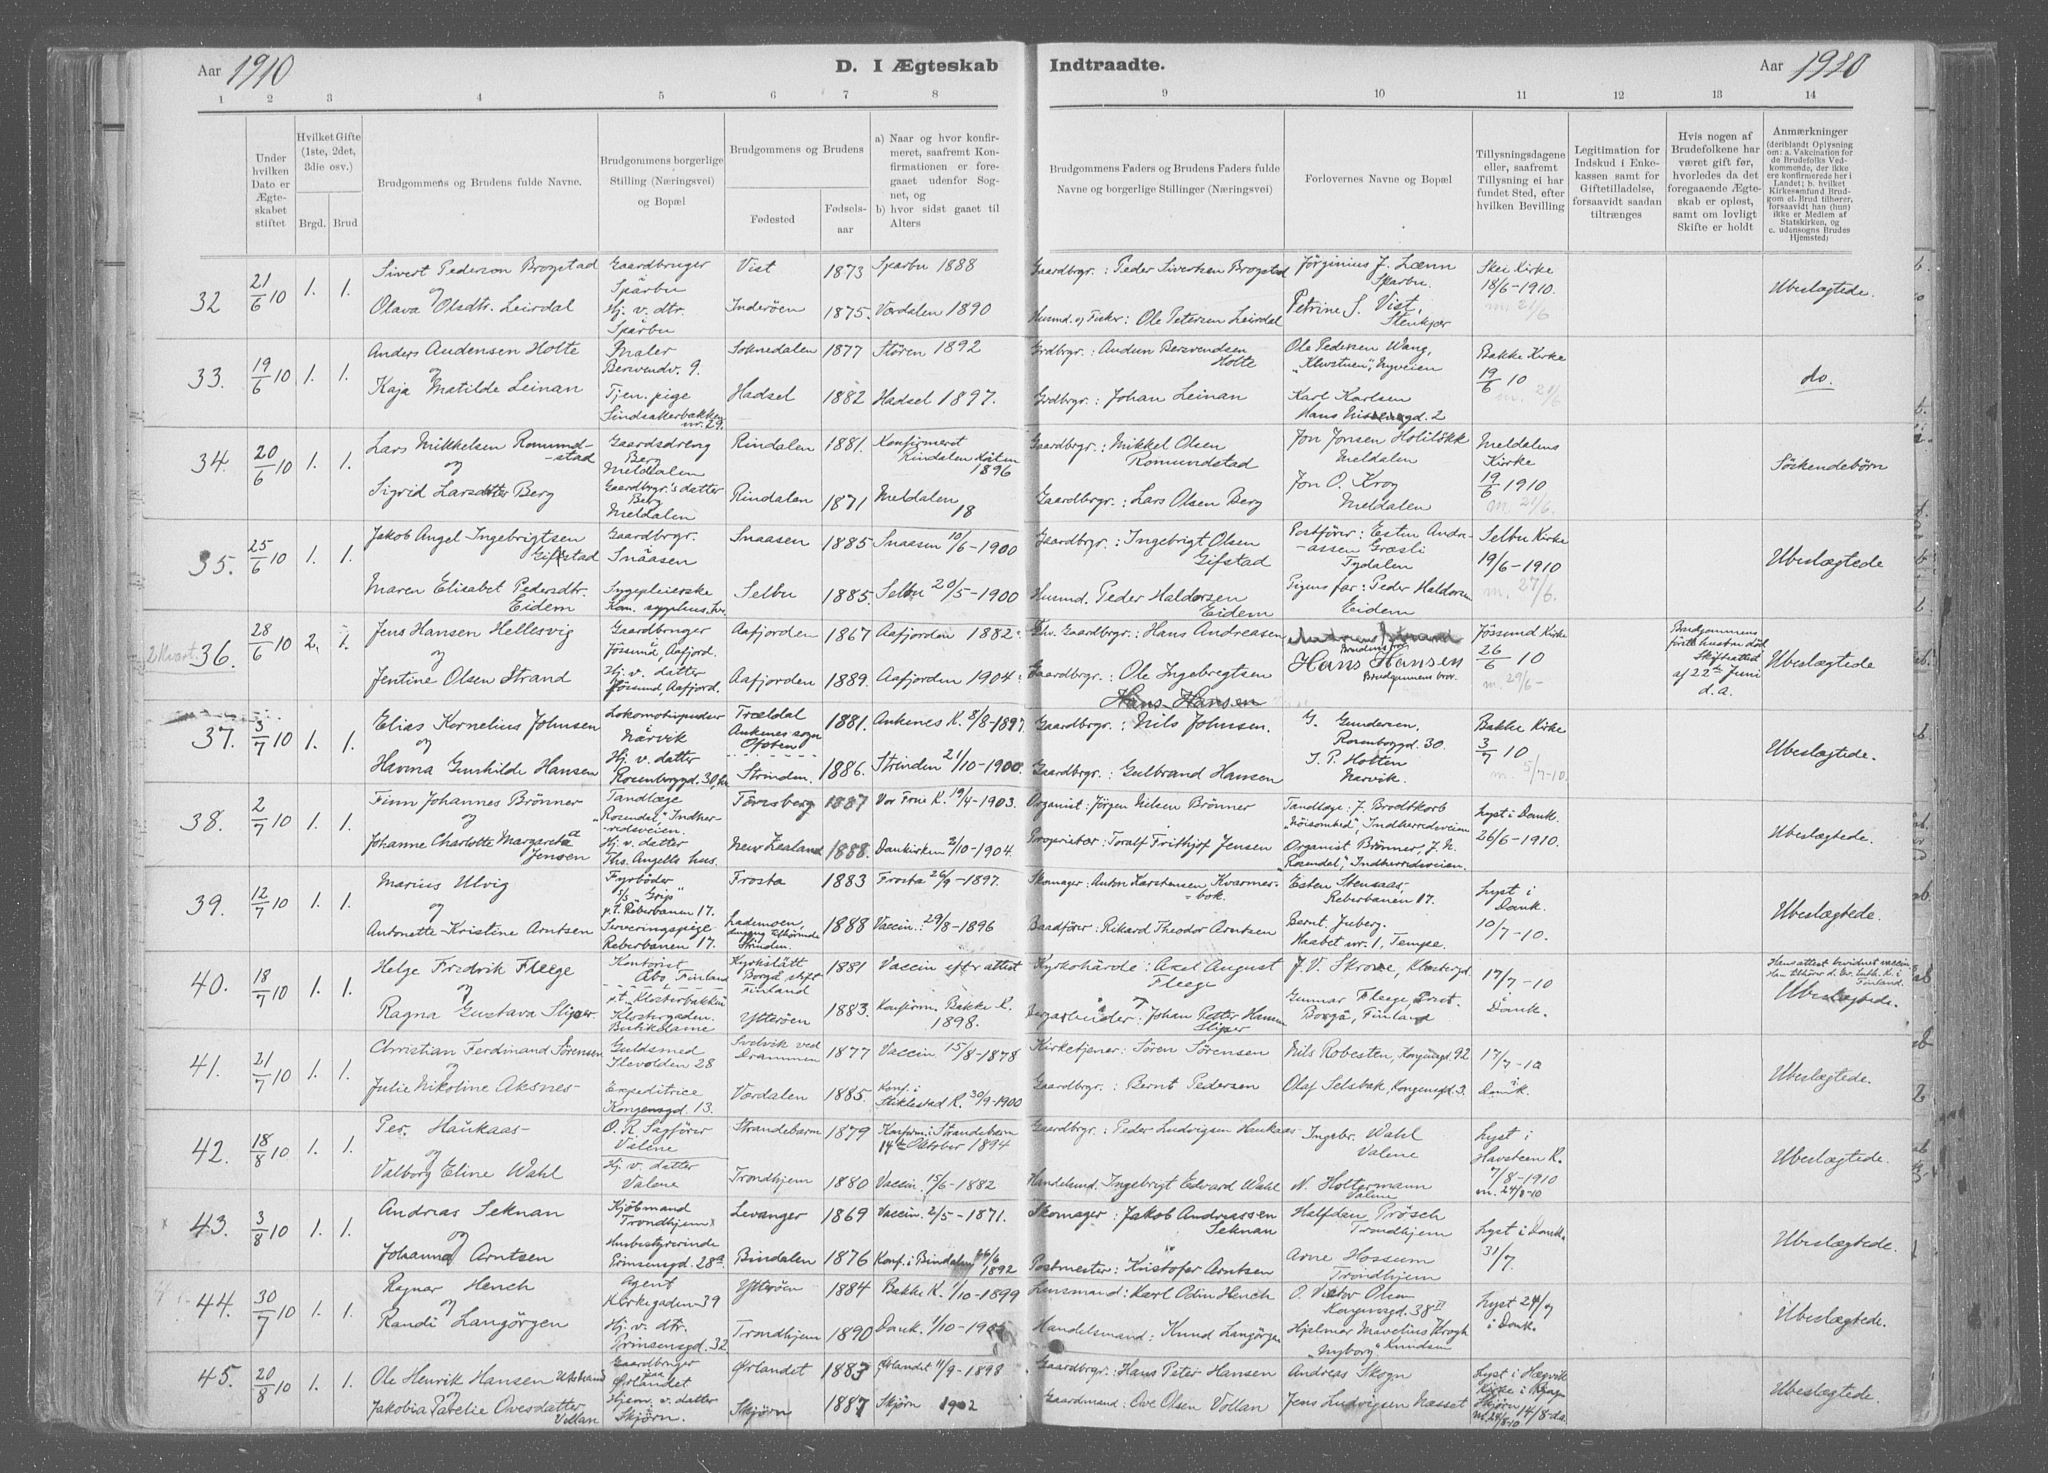 Aar 1910
D. I Ægteskab Indtraadte.
Aar 1910
1 2 3 4 5 6 7 8 9 10 11 12 13 14
Under hvilken Dato er Ægteskabet stiftet
Hvilket Gifte (1ste, 2det, 3die osv.)
Brgd. Brud
Brudgommens og Brudens fulde Navne.
Brudgommens borgerlige Stilling (Næringsvei) og Bopæl
Brudgommens og Brudens
Fødested
Fødsels-aar
a) Naar og hvor konfirmeret, saafremt Konfirmationen er foregaaet udenfor Sognet, og
b) hvor sidst gaaet til Alters
Brudgommens Faders og Brudens Faders fulde Navne og borgerlige Stillinger (Næringsvei)
Forlovernes Navne og Bopæl
Tillysningsdagene eller, saafremt Tillysning ei har fundet Sted, efter hvilken Bevilling
Legitimation for Indskud i Enkekassen samt for Giftetilladelse, forsaavidt saadan tiltrænges
Hvis nogen af Brudefolkene har været gift før, hvorledes da det foregaaende Ægteskab er opløst, samt om lovligt Skifte er holdt
Anmærkninger (deriblandt Oplysning om: a. Vakcination for de Brudefolks Vedkommende, der ikke ere konfirmerede her i Landet; b. hvilket Kirkesamfund Brudgom el. Brud tilhører, forsaavidt han (hun) ikke er Medlem af Statskirken, og c. udensogns Brudes Hjemsted;)
32 21/6 10 1. 1.
Sivert Pederson Brogstad Gaardbruger i Sparbu Vist 1873 Sparbu 1888 Gaardbrgr: Peder Sivertsen Brogstad Jörginius J. Lænn Sparbu. Skei Kirke 18/6-1910. m. 21/6 Ubeslægtede.
og
Olava Olsdtr. Leirdal Hj. v. dtr. Sparbu Inderöen 1875. Værdalen 1890 Husmd. og Fisker: Ole Petersen Leirdal Petrine S. Vist, Stenkjær
33. 19/6 10 1. 1.
Anders Audensen Holte Maler Bervendv. 9. Soknedalen 1877 Stören 1892 Grdbrgr.: Audun Bersvendsen Holte Ole Pedersen Wang, "Klostuen", Nyveien Bakke Kirke 19/6 10 m. 21/6 do.
og
Kaja Matilde Leinan Tjen. pige Lindsakerbakken nr. 29. Hadsel 1882 Hadsel 1897. Grdbrgr.: Johan Leinan Karl Karlsen Hans Nissensgd. 2
34. 20/6 10 1. 1.
Lars Mikkelsen Romundstad Gaardsdreng Berg Meldalen Rindalen 1881. Konfirmeret Rindalen Hösten 1896 Gaardbrgr.: Mikkel Olsen Romundstad Jon Jonsen Holilökk Meldalen Meldalens Kirke 19/6 1910 m. 21/6. Söskendebörn
og
Sigrid Larsdatter Berg Gaardbrgr.'s datter Berg Meldalen Rindalen 1871 Meldalen 18 Gaardbrgr.: Lars Olsen Berg Jon O. Krog Meldalen
35. 25/6 10 1. 1.
Jakob Angel Ingebrigtsen Gifstad Gaardbrgr. Snåasen Snaasen 1885 Snaasen 10/6-1900 Gaardbrgr.: Ingebrigt Olsen Gifstad Postförer: Esten Andreassen Græsli Tydalen Selbu Kirke 19/6-1910 m. 27/6. Ubeslægtede
Maren Elisabet Pedersdtr. Eidem Sygepleierske Kom. sygehus, hr. Selbu 1885. Selbu 20/5-1900 Husmd. Peder Haldorsen Eidem Pigens far: Peder Haldorsen Eidem
2 Kvart. 36. 28/6 10 2. 1.
Jens Hansen Hellesvig Gaardbruger Jössund, Aafjord. Aafjorden 1867 Aafjorden 1882. Fhv. Gaardbrgr.: Hans Andreasen Andreas Strand Brudens bror Jössund Kirke 26/6 10 m. 29/6- Brudgommens förste hustru död Skifteattest af 22de Juni d. a. Ubeslægtede
og
Jentine Olsen Strand Hj. v. datter Jössund, Aafjord. Aafjorden 1889. Aafjorden 1904. Gaardbrgr.: Ole Ingebregtsen Hans Hansen Brudgommens bror.
Hans Hansen
37. 3/7 10 1. 1.
Elias Kornelius Johnsen Lokomotivpudser Närvik Trældal Ankenes sogn Ofoten 1881. Ankenes K. 8/8-1897. Gaardbrgr.: Nils Johnsen. G. Gundersen, Rosenborggd. 30. Bakke Kirke 3/7 10 m. 5/7-10. Ubeslægtede.
og
Hanna Gunhilde Hansen Hj. v. datter Rosenborggd. 30, hr. Strinden. 1886. Strinden 21/10-1900. Gaardbrgr.: Gulbrand Hansen J. P. Holten Narvik.
38. 2/7 10 1. 1.
Finn Johannes Brönner Tandlæge "Rosendal", Indherredsveien. Tönsberg 1887 Vor Frue K. 19/4-1903. Organist: Jörgen Nilsen Brönner Tandlæge: J. Brodtkorb "Nöisomhed", Indherredsveien Lyst i Domk. 26/6-1910. Ubeslægtede.
og
Johanne Charlotte Margareta Jensen Hj. v. datter Ths. Angells hus. New Zealand 1888. Domkirken 2/10-1904. Proprietær: Toralf Frithjof Jensen Organist Brönner, J. N. "Rosendal", Indherredsveien.
39. 12/7 10 1. 1.
Marius Ulvig Fyrböder S/S "Grip" p.t. Reberbanen 17. Frosta 1883 Frosta 26/9-1897. Skomager: Anton Karstensen Kvarmesbok. Esten Stensaas, Reberbanen 17. Lyst i Domk. 10/7-10. Ubeslægtede.
og
Antonette Kristine Arntsen Serveringspige Reberbanen 17. Lademoen, Strinden. 1888 Vaccin.: 29/8-1896 Baadförer: Rikard Theodor Arntsen Bernt Jusberg. Haabet nr. 1, Tempe.
40. 18/7 10 1. 1.
Helge Fredrik Fleege Kontorist Åbo, Finland p.t. Klosterbakken Kyrkslätt Borgå stift Finland 1881 Vaccin eftr attest Kyrkohärde: Axel August Fleege J. V. Skrove, Klostergd. 17/7-10 i Domk. Hans attest bevidnet vaccin. Han tilhörer d. Ev. Luth. K. i Finland. Ubeslægtede.
og
Ragna Gustava Sliper. Klostergaden. Butikdame Ytteröen 1883. Konfirm. Bakke K. 1898. Bergarbeider: Johan Petter Hansen Sliper Gunnar Fleege, Borgå, Finland
41. 21/7 10 1. 1.
Christian Ferdinand Sörensen Guldsmed Ilevolden 28 Svelvik ved Drammen 1877 Vaccin 15/8-1878 Kirketjener: Sören Sörensen Nils Robesten, Kongensgd. 92 17/7-10 i Domk. Ubeslægtede.
og
Julie Nikoline Aksnes Expeditrice Kongensgd. 13. Værdalen 1885. Konf. i Stiklestad K. 30/9-1900 Gaardbrgr.: Bernt Pedersen Olaf Selsbak, Kongensgd. 3.
42. 18/8 10 1. 1.
Per. Haukaas O. R. Sagförer Valene Strandebarm 1879 Konfirm. i Strandebarm 14de Oktober 1894 Gaardbrgr.: Peder Ludvigsen Haukaas Ingebr. Wahl Valene Lyst i Havsteen K. 7/8-1910 m. 24/8-10 Ubeslægtede.
og
Valborg Eline Wahl Hj. v. datter Valene Trondhjem 1880 Vaccin. 15/6-1882 Handelsmd. Ingebrigt Edvard Wahl N. Holtermann Valene
43. 3/8 10 1. 1.
Andreas Seknan Kjöbmand Trondhjem Levanger 1869 Vaccin. 2/5-1871. Skomager: Jakob Andreassen Seknan Halfdan Prösch Trondhjem Lyst i Domk. 31/7. Ubeslægtede.
og
Johanna Arntsen Husbestyrerinde Prinsensgd. 28a. Bindalen 1876 Konf. i Bindalen 26/6 1892 Postmester: Kristofer Arntsen Arne Hossum Trondhjem
44. 30/7 10 1. 1.
Ragnar Hench Agent Kirkegaden 39 Ytteröen 1884 Bakke K. 1/10-1899 Lensmand: Karl Odin Hench O. Victor Olsen Kongensgd. 38 II Lyst 24/7 i Domk. Ubeslægtede.
og
Randi Langörgen Hj. v. dtr. Prinsensgd. 32 Trondhjem 1890 Domk. 1/10- Handelsmand: Knud Langörgen Hjelmar Marelius Krogh "Nyborg" Knudsen
45. 20/8 10 1. 1.
Ole Henrik Hansen Utstrand Gaardbruger paa Ørlandet Ørlandet 1883 Ørlandet 11/9-1898 Gaardbrgr: Hans Peter Hansen Andreas Skogn Lyst i Hegvik Kirke i Skjörn 14/8-d.a. m. 28/8-10 Ubeslægtede.
og
Jakobia Petelie Ovesdatter Vollan Hjem. v. datter Skjörn. Skjörn 1887 Skjörn 1902 Gaardmand: Ove Olsen Vollan Jens Ludvigsen Næsset